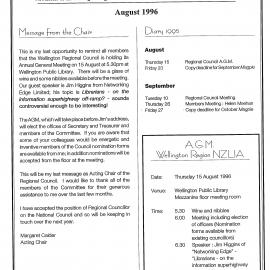 August 1996
Message from the Chair
This is my last opportunity to remind all members
that the Wellington Regional Council is holding its
Annual General Meeting on 15 August at 5.30pm at
Wellington Public Library. There will be a glass of
wine and some nibbles available before the meeting.
Our guest speaker is Jim Higgins from Networking
Edge Limited; his topic is Librarians - on the
information superhighway off-ramp? - sounds
controversial enough to be interesting!
The AGM, which will take place before Jim's address,
will elect the offices of Secretary and Treasurer and
members of the Committee. If you are aware that
some of your colleagues would be energetic and
inventive members of the Council nomination forms
are available from me; in addition nominations will be
accepted from the floor at the meeting.
This will be my last message as Acting Chair of the
Regional Council. I would like to thank all of the
members of the Committee for their generous
assistance to me over the last few months.
I have accepted the position of Regional Councillor
on the National Council and so will be keeping in
touch over the next year.
Margaret Calder
Acting Chair
Diary 1996
August
Thursday 15 Regional Council A.G.M.
Friday 23 Copy deadline for September Misgile
September
Tuesday 10 Regional Council Meeting
Thursday 26 Members Meeting : Helen
Friday 27 Copy deadline for October Misgile
A G M
Wellington Region NZLIA
Date: Thursday 15 August 1996
Venue: Wellington Public Library
Mezzanine floor meeting room
Time: 5.30 Wine and nibbles
6.00 Meeting including election
of officers (Nomination
forms available from
existing councillors)
6.30 Speaker : Jim Higgins of
"Networking Edge" -
"Librarians - on the
information superhighway